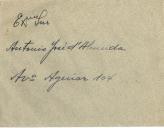 Exmo Snr
Antonio José d'Almeida
Avª Aguiar 104